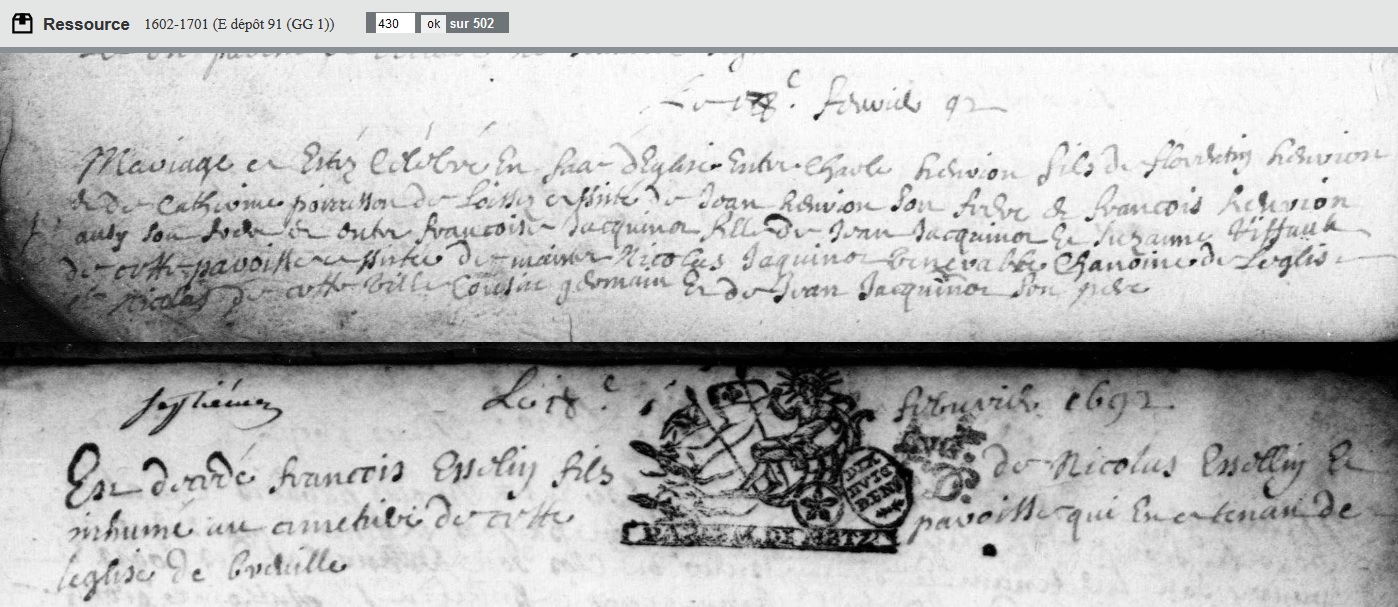 Ressource 1602-1701 (E dépôt 91 (GG 1)) 430 ok sur 502
Le 18.e febvrier 92
Mariage a Estez Celebré En face dEglise Entre Charle henrion fils de florentin henrion
et de Catherine poirresson de Loissez assisté de Jean henrion son frere et francois henrion
ausy son frere et entre francoise Jacquinot fille de Jean Jacquinot Et Suzanne
de cette paroisse assistée de maitre Nicolas Jaquinot venerable Chanoine de Leglise
St Nicolas de cette ville Cousin germain Et de Jean Jacquinot son pere
septiéme Le 18.e febuvrier 1692
Est decedé francois Esselin fils de Nicolas Essellin Et
inhumé au cimetiere de cette paroisse qui En atenan de
leglise de breuille
GEN. DE METZ